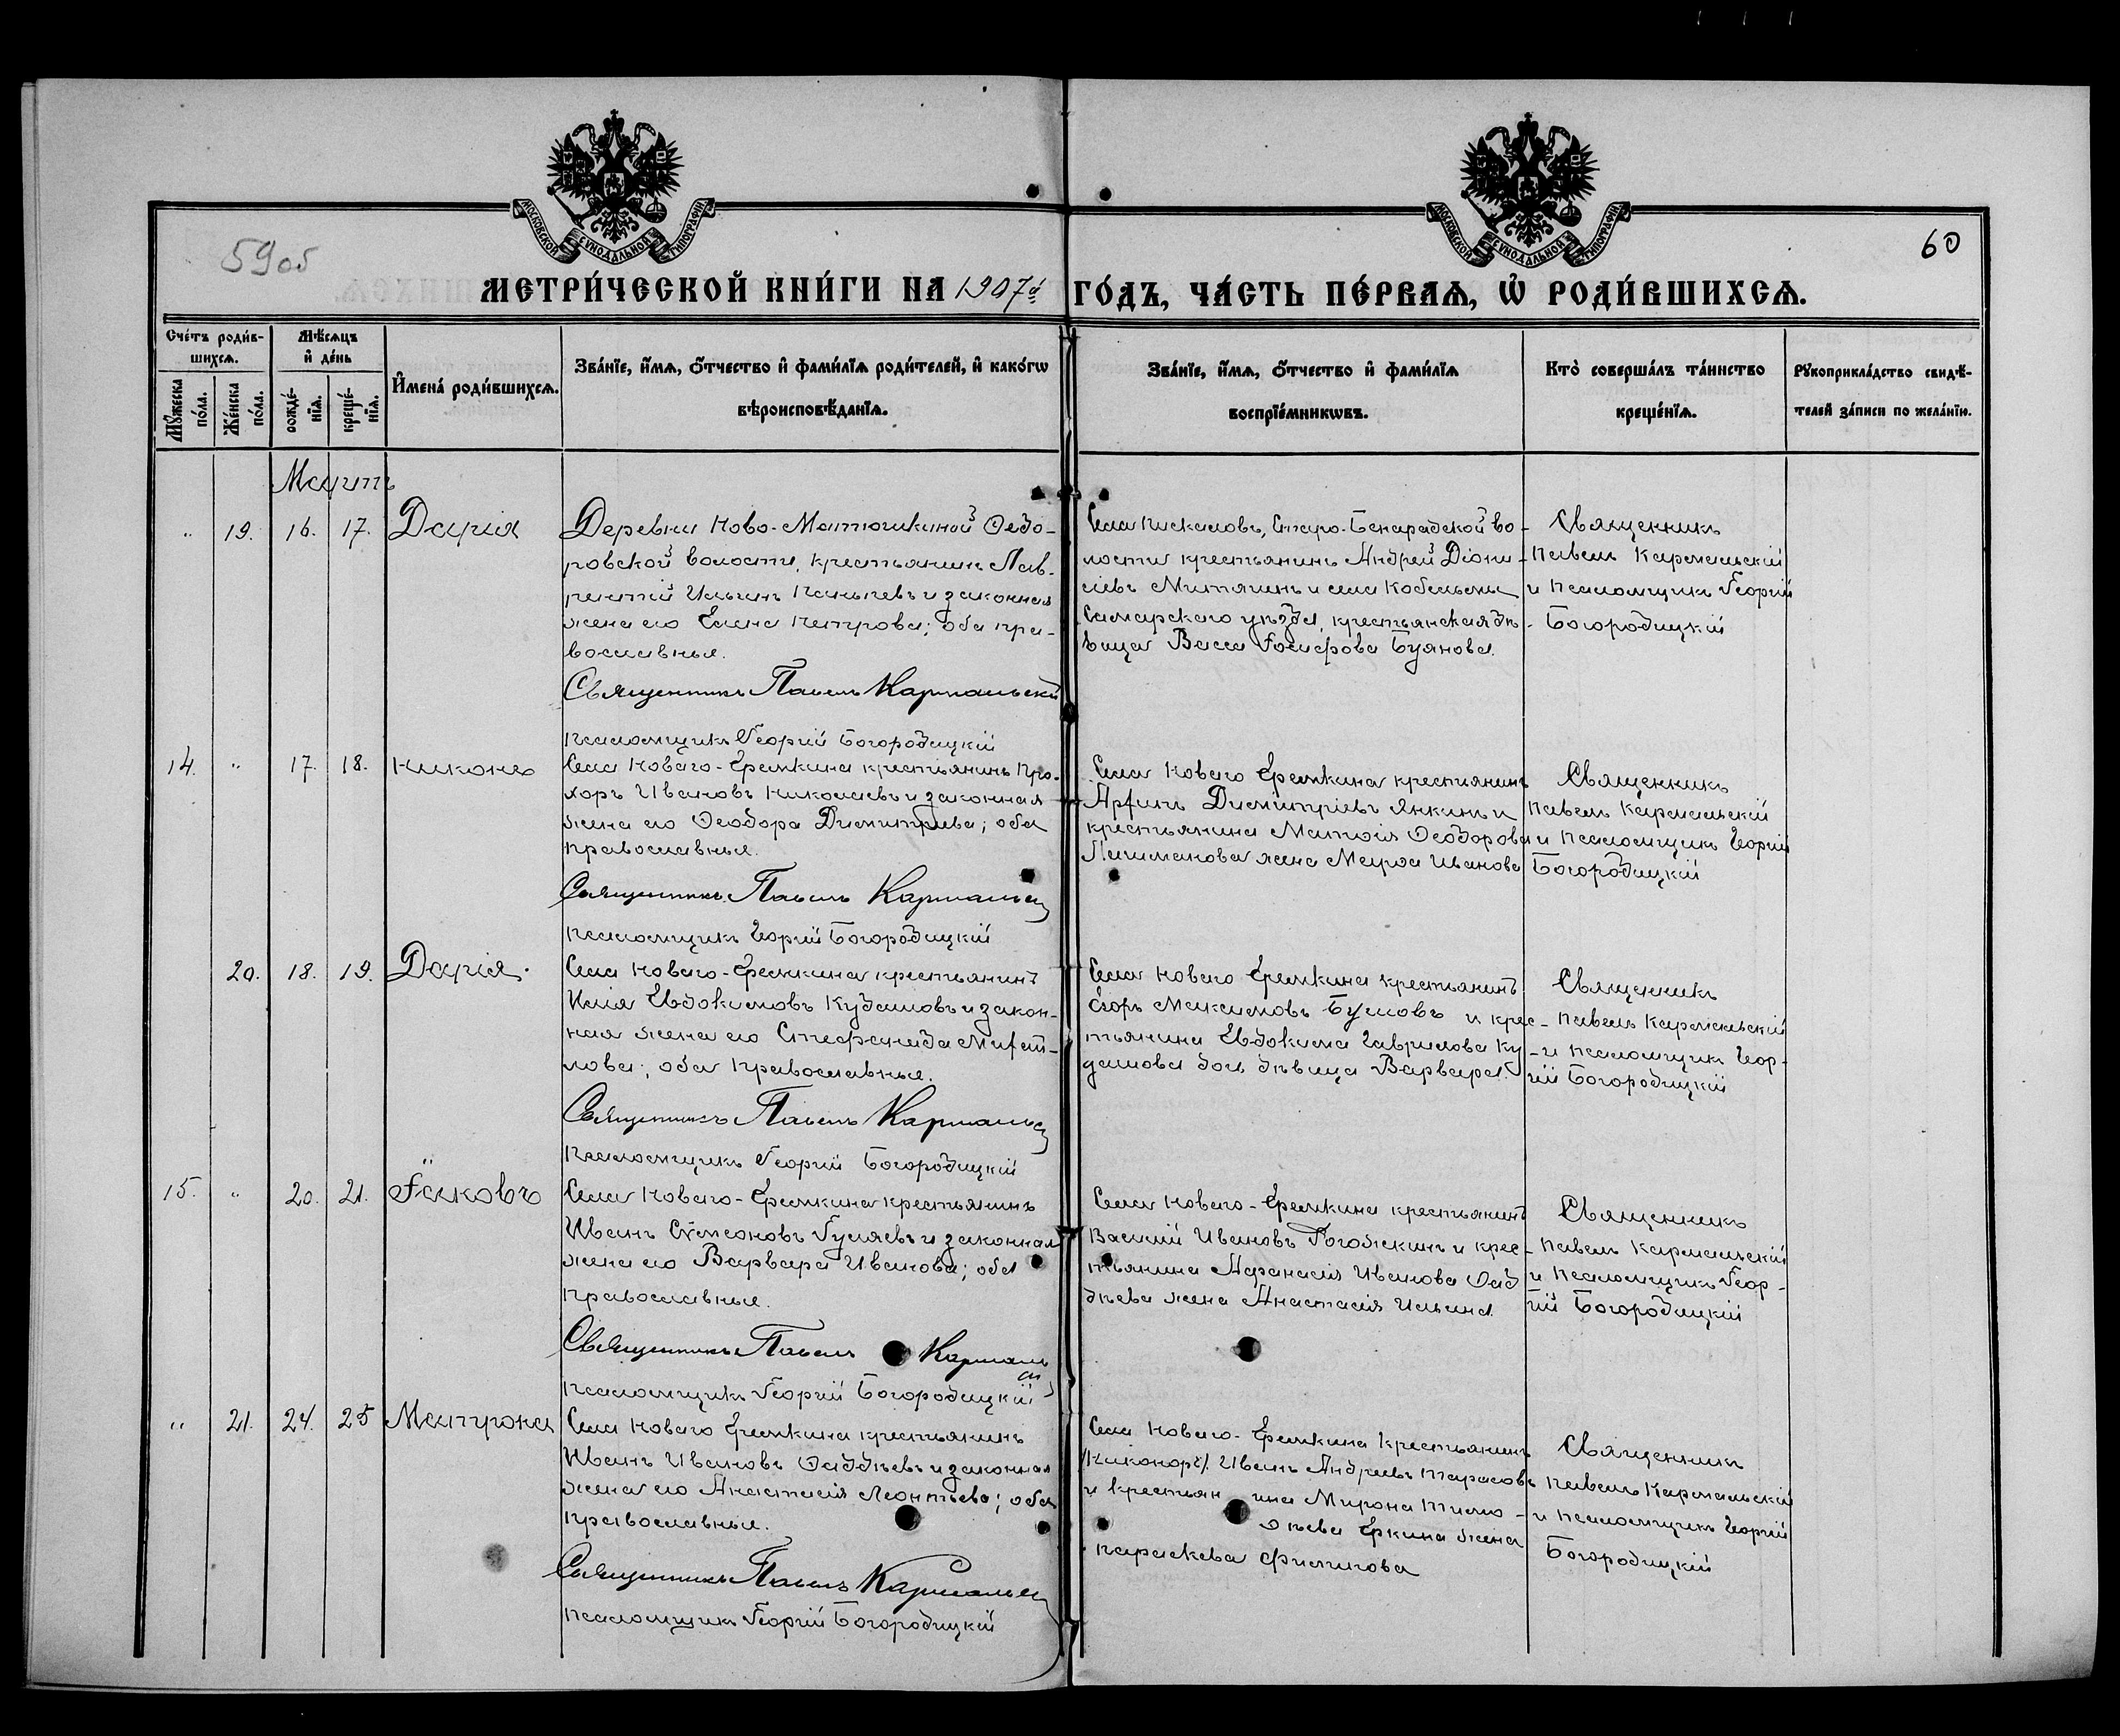 МОСКОВСКОЙ СѴНОДАЛЬНОЙ ТИПОГРАФІИ
МОСКОВСКОЙ СѴНОДАЛЬНОЙ ТИПОГРАФІИ
59об
60
МЕТРИ́ЧЕСКОЙ КНИ́ГИ НА 1907й ГО́ДЪ, ЧА́СТЬ ПЕ́РВАѦ, Ѡ҆ РОДИ́ВШИХСѦ.
Сче́тъ роди́в-
шихсѧ.
Мꙋ́жеска по́ла.
Же́нска по́ла.
Мѣ́сѧцъ
и҆ де́нь
рожде́-
нїѧ.
креще́-
нїѧ.
И҆мена́ роди́вшихсѧ.
Зва́нїе, и҆́мѧ, ѻ҆́тчество и҆ фами́лїѧ роди́телей, и҆ како́гѡ
вѣроисповѣ́данїѧ.
Зва́нїе, и҆́мѧ, ѻ҆́тчество и҆ фами́лїѧ
воспрїе́мникѡвъ.
Кто̀ соверша́лъ та́инство
креще́нїѧ.
Рꙋкоприкла́дство свидѣ́-
телей за́писи по жела́нїю.
Мартъ
" 19. 16. 17. Дарія
Деревни Ново-Матюшкиной Ѳедо-
ровской волости, крестьянинъ Лав-
рентій Ильинъ и законная
жена его Елена Петрова; оба пра-
вославные.
Священникъ Павелъ Кармальскій
Псаломщикъ Георгій Богородицкій
Села Пискаловъ, Старо-Бинарадской во-
лости крестьянинъ Андрей Діони-
сіевъ Митяшинъ и села Кобельмы
Самарскаго уѣзда, крестьянская дѣ-
вица Васса Іосифова Буянова.
Священникъ
Павелъ Кармальскій
и Псаломщикъ Георгій
Богородицкій
14. " 17. 18. Никонъ
Села Новаго-Еремкина крестьянинъ Про-
хоръ Ивановъ Николаевъ и законная
жена его Ѳеодора Димитріева; оба
православные.
Священникъ Павелъ Кармальскій
Псаломщикъ Георгій Богородицкій
Села Новаго Еремкина крестьянинъ
Арѳинъ Димитріевъ Янкинъ и
крестьянина Матѳія Ѳеодорова
Лашманова жена Марѳа Иванова
Священникъ
Павелъ Кармальскій
и Псаломщикъ Георгій
Богородицкій
20. 18. 19. Дарія.
Села Новаго-Еремкина крестьянинъ
Илія Евдокимовъ Кудашовъ и закон-
ная жена его Стефанида Михай-
лова; оба православные.
Священникъ Павелъ Кармальскій
Псаломщикъ Георгій Богородицкій
Села Новаго Еремкина крестьянинъ
Егоръ Максимовъ и крес-
тьянина Евдокима Гаврилова Ку-
дашова дочь дѣвица Варвара.
Священникъ
Павелъ Кармальскій
и Псаломщикъ Геор-
гій Богородицкій
15. " 20. 21. Іаковъ
Села Новаго-Еремкина крестьянинъ
Иванъ Сѵмеоновъ Гуляевъ и законная
жена его Варвара Иванова; оба
православные.
Священникъ Павелъ Кармальскій
Псаломщикъ Георгій Богородицкій
Села Новаго-Еремкина крестьянинъ
Василій Ивановъ Рогожкинъ и крес-
тьянина Аѳанасія Иванова Ѳад-
дѣева жена Анастасія Ильина.
Священникъ
Павелъ Кармальскій
и Псаломщикъ Геор-
гій Богородицкій
" 21. 24. 25 Матрона
Села Новаго Еремкина крестьянинъ
Иванъ Ивановъ Ѳаддѣевъ и законная
жена его Анастасія Леонтьева; оба
православные.
Священникъ Павелъ Кармальскій
Псаломщикъ Георгій Богородицкій
Села Новаго-Еремкина крестьянинъ
Иванъ Андреевъ Тарасовъ
и крестьянина Мирона Тимо-
ѳѣева Еркина жена
Параскева Филипова
Священникъ
Павелъ Кармальскій
и Псаломщикъ Георгій
Богородицкій